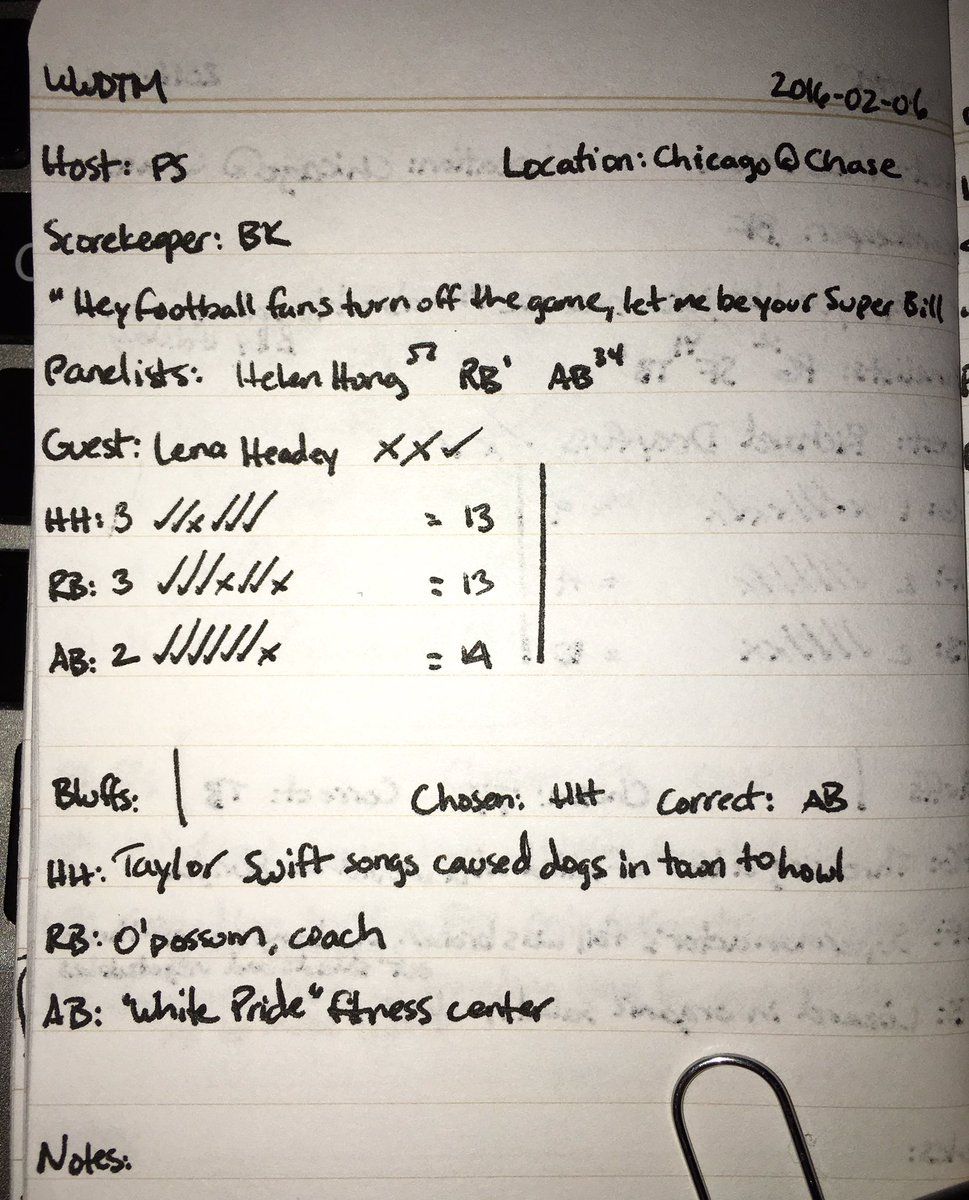 WWDTM 2016-02-06
Host: PS Location: Chicago @ Chase
Scorekeeper: BK
"Hey football fans turn off the game, let me be your Super Bill
Panelists: Helen Hong 52 RB 1 AB 34
Guest: Lena Headey ✗✗✓
HH: 3 ✓✓✗✓✓✓ = 13
RB: 3 ✓✓✓✗✓✓✗ = 13
AB: 2 ✓✓✓✓✓✓✗ = 14
Bluffs: Chosen: HH Correct: AB
HH: Taylor Swift songs caused dogs in town to howl
RB: O'possum, coach
AB: "White Pride" fitness center
Notes: